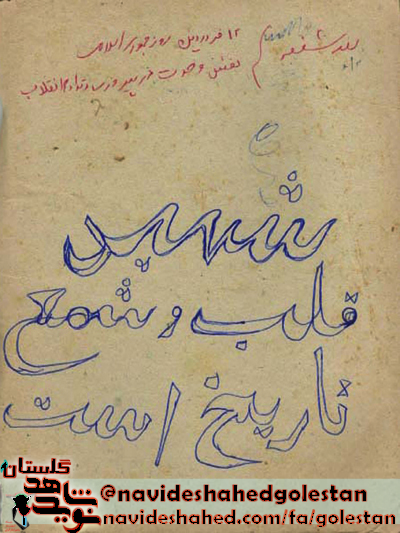 ۱۲ فروردین روز جمهوری اسلامی
نقش وحدت در پیروزی و تداوم انقلاب
شهید
قلب و شمع
تاریخ است
گلستان
نوید شاهد
@navideshahedgolestan
navideshahed.com/fa/golestan